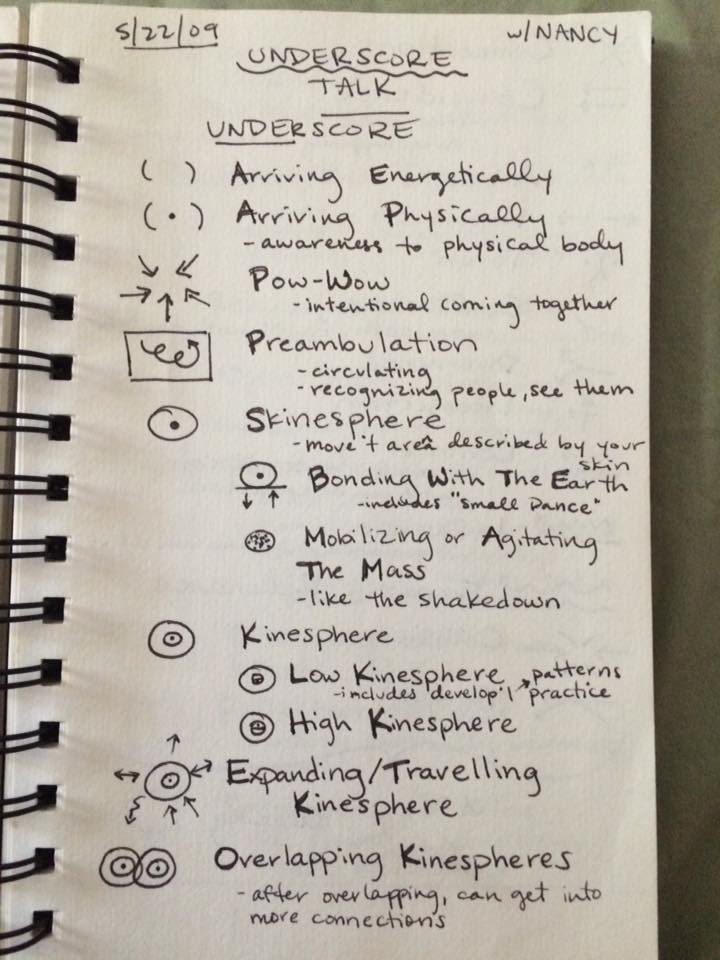 5/22/09 w/NANCY
UNDERSCORE
TALK
UNDERSCORE
( ) Arriving Energetically
(•) Arriving Physically
- awareness to physical body
Pow-Wow
- intentional coming together
Preambulation
- circulating
- recognizing people, see them
Skinesphere
- move't area described by your
skin
Bonding With The Earth
- includes "small Dance"
Mobilizing or Agitating
The Mass
- like the shakedown
Kinesphere
Low Kinesphere
- includes develop'l patterns
practice
High Kinesphere
Expanding/Travelling
Kinesphere
Overlapping Kinespheres
- after overlapping, can get into
more connections